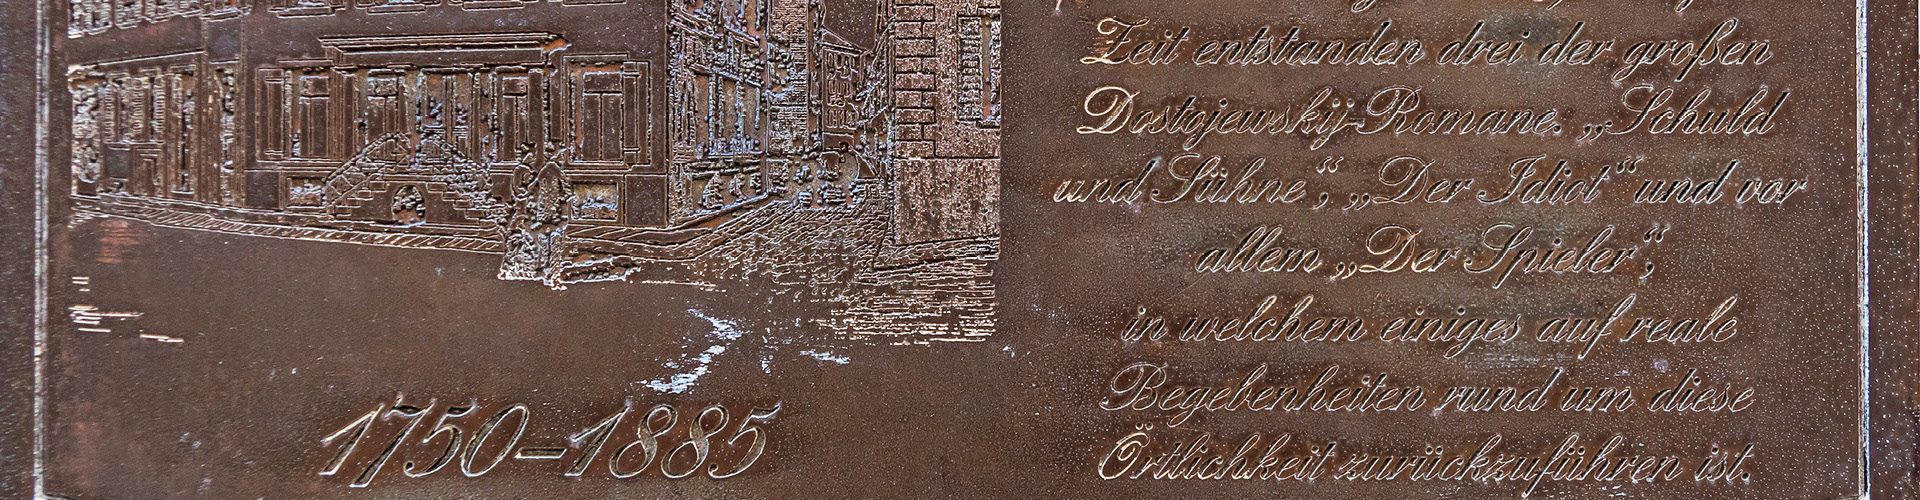 Zeit entstanden drei der großen
Dostojewskij-Romane: „Schuld
und Sühne“, „Der Idiot“ und vor
allem „Der Spieler“,
in welchem einiges auf reale
Begebenheiten rund um diese
Örtlichkeit zurückzuführen ist.
1750–1885